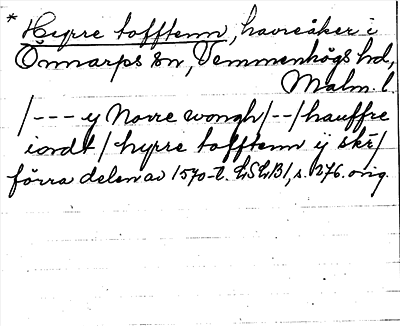 * Hyrre tofftenn, havreåker i
Önnarps sn, Vemmenhögs hd,
Malm. l.
/--- y Norre wongh/--/hauffre
iordt/hyrre tofftenn ÿ skr̃/
förra delen av 1570-t. LSLB1, s. 276. orig.